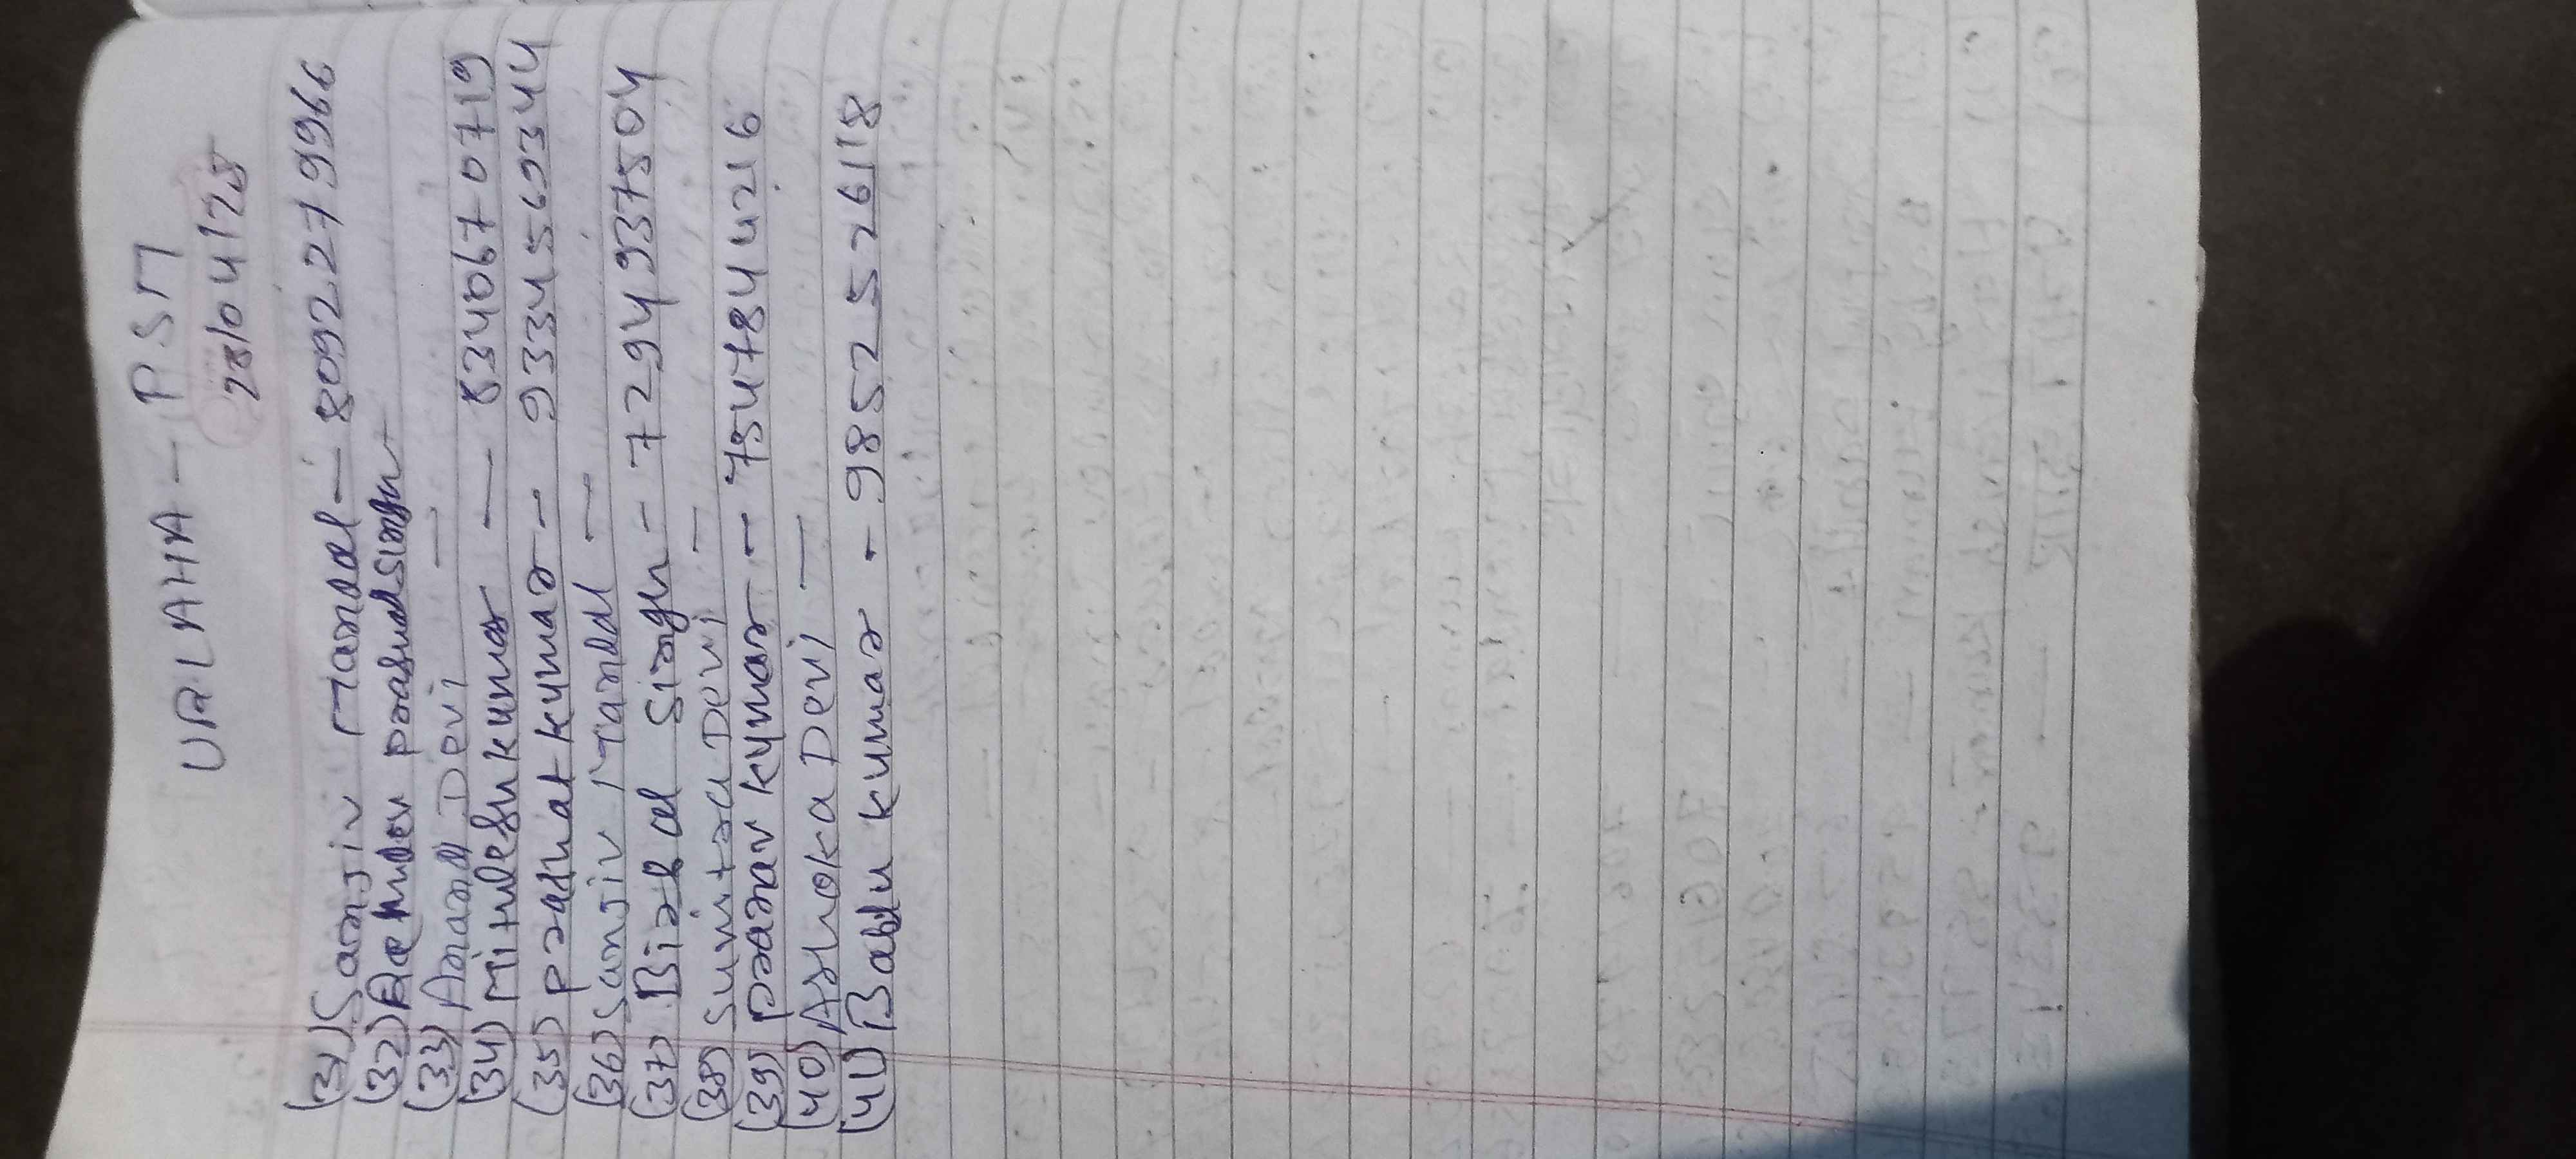 URLAHA - PSM
28/04/25
(31) Sanjiv Mandal - 8092279966
(32) prasad singh
(33) Anand Devi -
(34) Mithlesh kumar - 8340670719
(35) prabhat kumar - 9334569344
(36) Sanjiv Mandal -
(37) Singh - 7294937504
(38) Sumitra Devi -
(39) pranav kumar - 7547844216
(40) Ashoka Devi -
(41) Bablu kumar - 9852526118